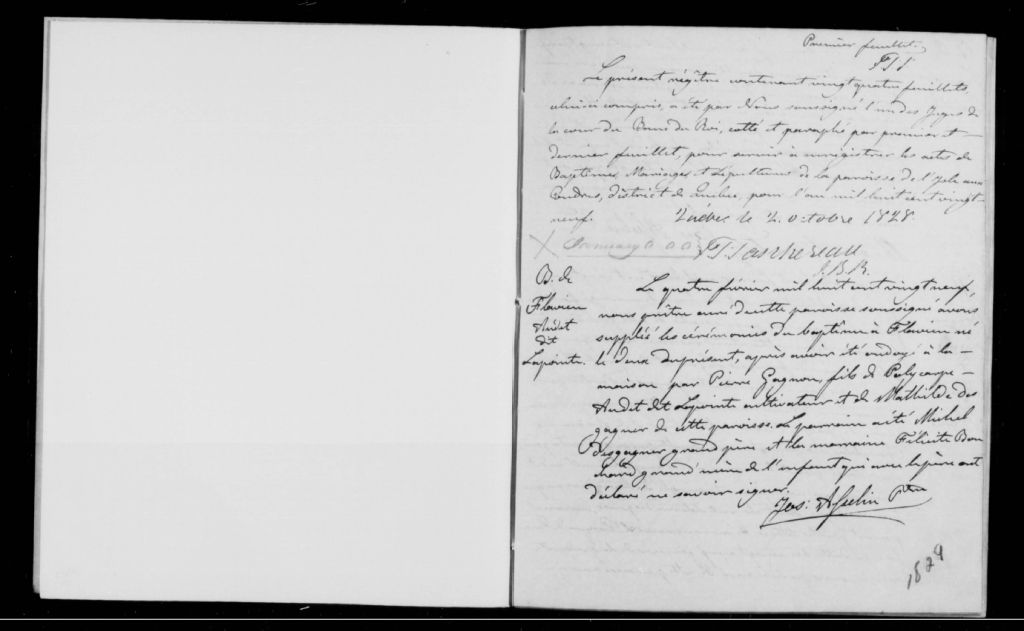 Premier feuillet.
Le présent régître contenant vingt quatre feuillets,
celui ci compris, a été par Nous soussigné l'un des Juges de
la cour du Banc du Roi, cotté et paraphé par premier et
dernier feuillet, pour servir à enregistrer les actes de
Baptêmes, Mariages et Sépultures de la paroisse de l'Isle aux
Coudres, district de Québec, pour l'an mil huit cent vingt
neuf. Québec le 2. octobre 1828.
Taschereau
J. B. R.
B. de
Flavien
Audet
dit
Lapointe.
Le quatre février mil huit cent vingt neuf,
nous prêtre curé de cette paroisse soussigné avons
supplée les cérémonies du baptême à Flavien né
le deux du présent, après avoir été ondoyé à la
maison par Pierre Gagnon, fils de Polycarpe
Audet dit Lapointe cultivateur et de Mathilde Des
gagner de cette paroisse. Le parrain a été Michel
Desgagner grand père et la marraine Félicité Bou
chard grand'mère de l'enfant qui avec le père ont
déclaré ne savoir signer.
Jos: Asselin Ptre
1829